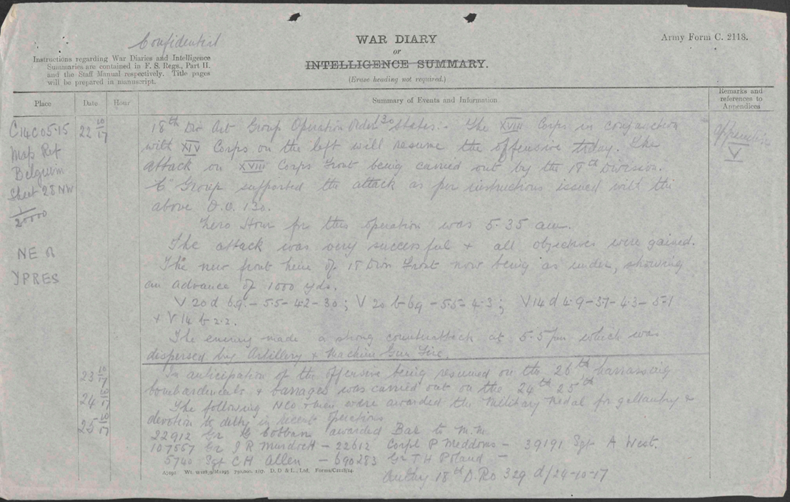 Confidential
WAR DIARY
or
INTELLIGENCE SUMMARY.
(Erase heading not required.)
Army Form C. 2118.
Instructions regarding War Diaries and Intelligence
Summaries are contained in F. S. Regs., Part II.
and the Staff Manual respectively. Title pages
will be prepared in manuscript.
Place
Date
Hour
Summary of Events and Information
Remarks and
references to
Appendices
C14C05-15
Map Ref
Belgium
Sheet 28 NW
1/20000
NE R
YPRES
22 10/17
18th Div Art Group Operation Order 130 states:- The XVIII Corps in conjunction
with XIV Corps on the left will resume the offensive today. The
attack on XVIII Corps Front being carried out by the 18th Division.
C Group supported the attack as per instructions issued with the
above O.O. 130.
Zero Hour for this operation was 5-35 am.
The attack was very successful & all objectives were gained.
The new front line of 18 Divn Front now being as under, showing
an advance of 1000 yds.
V20d 69-55-42-30; V20b-69-55-43; V14d 49-57-43-51
& V14b-2.2.
The enemy made a strong counterattack at 5-5 pm which was
dispersed by Artillery & Machine Gun Fire.
Appendix
V
23 10/17
24 10/17
25 10/17
In anticipation of the offensive being resumed on the 26th harrassing
bombardments & barrages was carried out on the 24th 25th
The following NCO & men were awarded the Military Medal for gallantry &
devotion to duty in recent operations
22912 Gr Cobban awarded Bar to M.M.
107557 Gr J R Murdoch - 22612 Corpl P Meddows - 39191 Sgt A West.
5740 Sgt C H Allen - 690283 Gr T H Poland -
Authy 18th D.RO 329 d/24-10-17